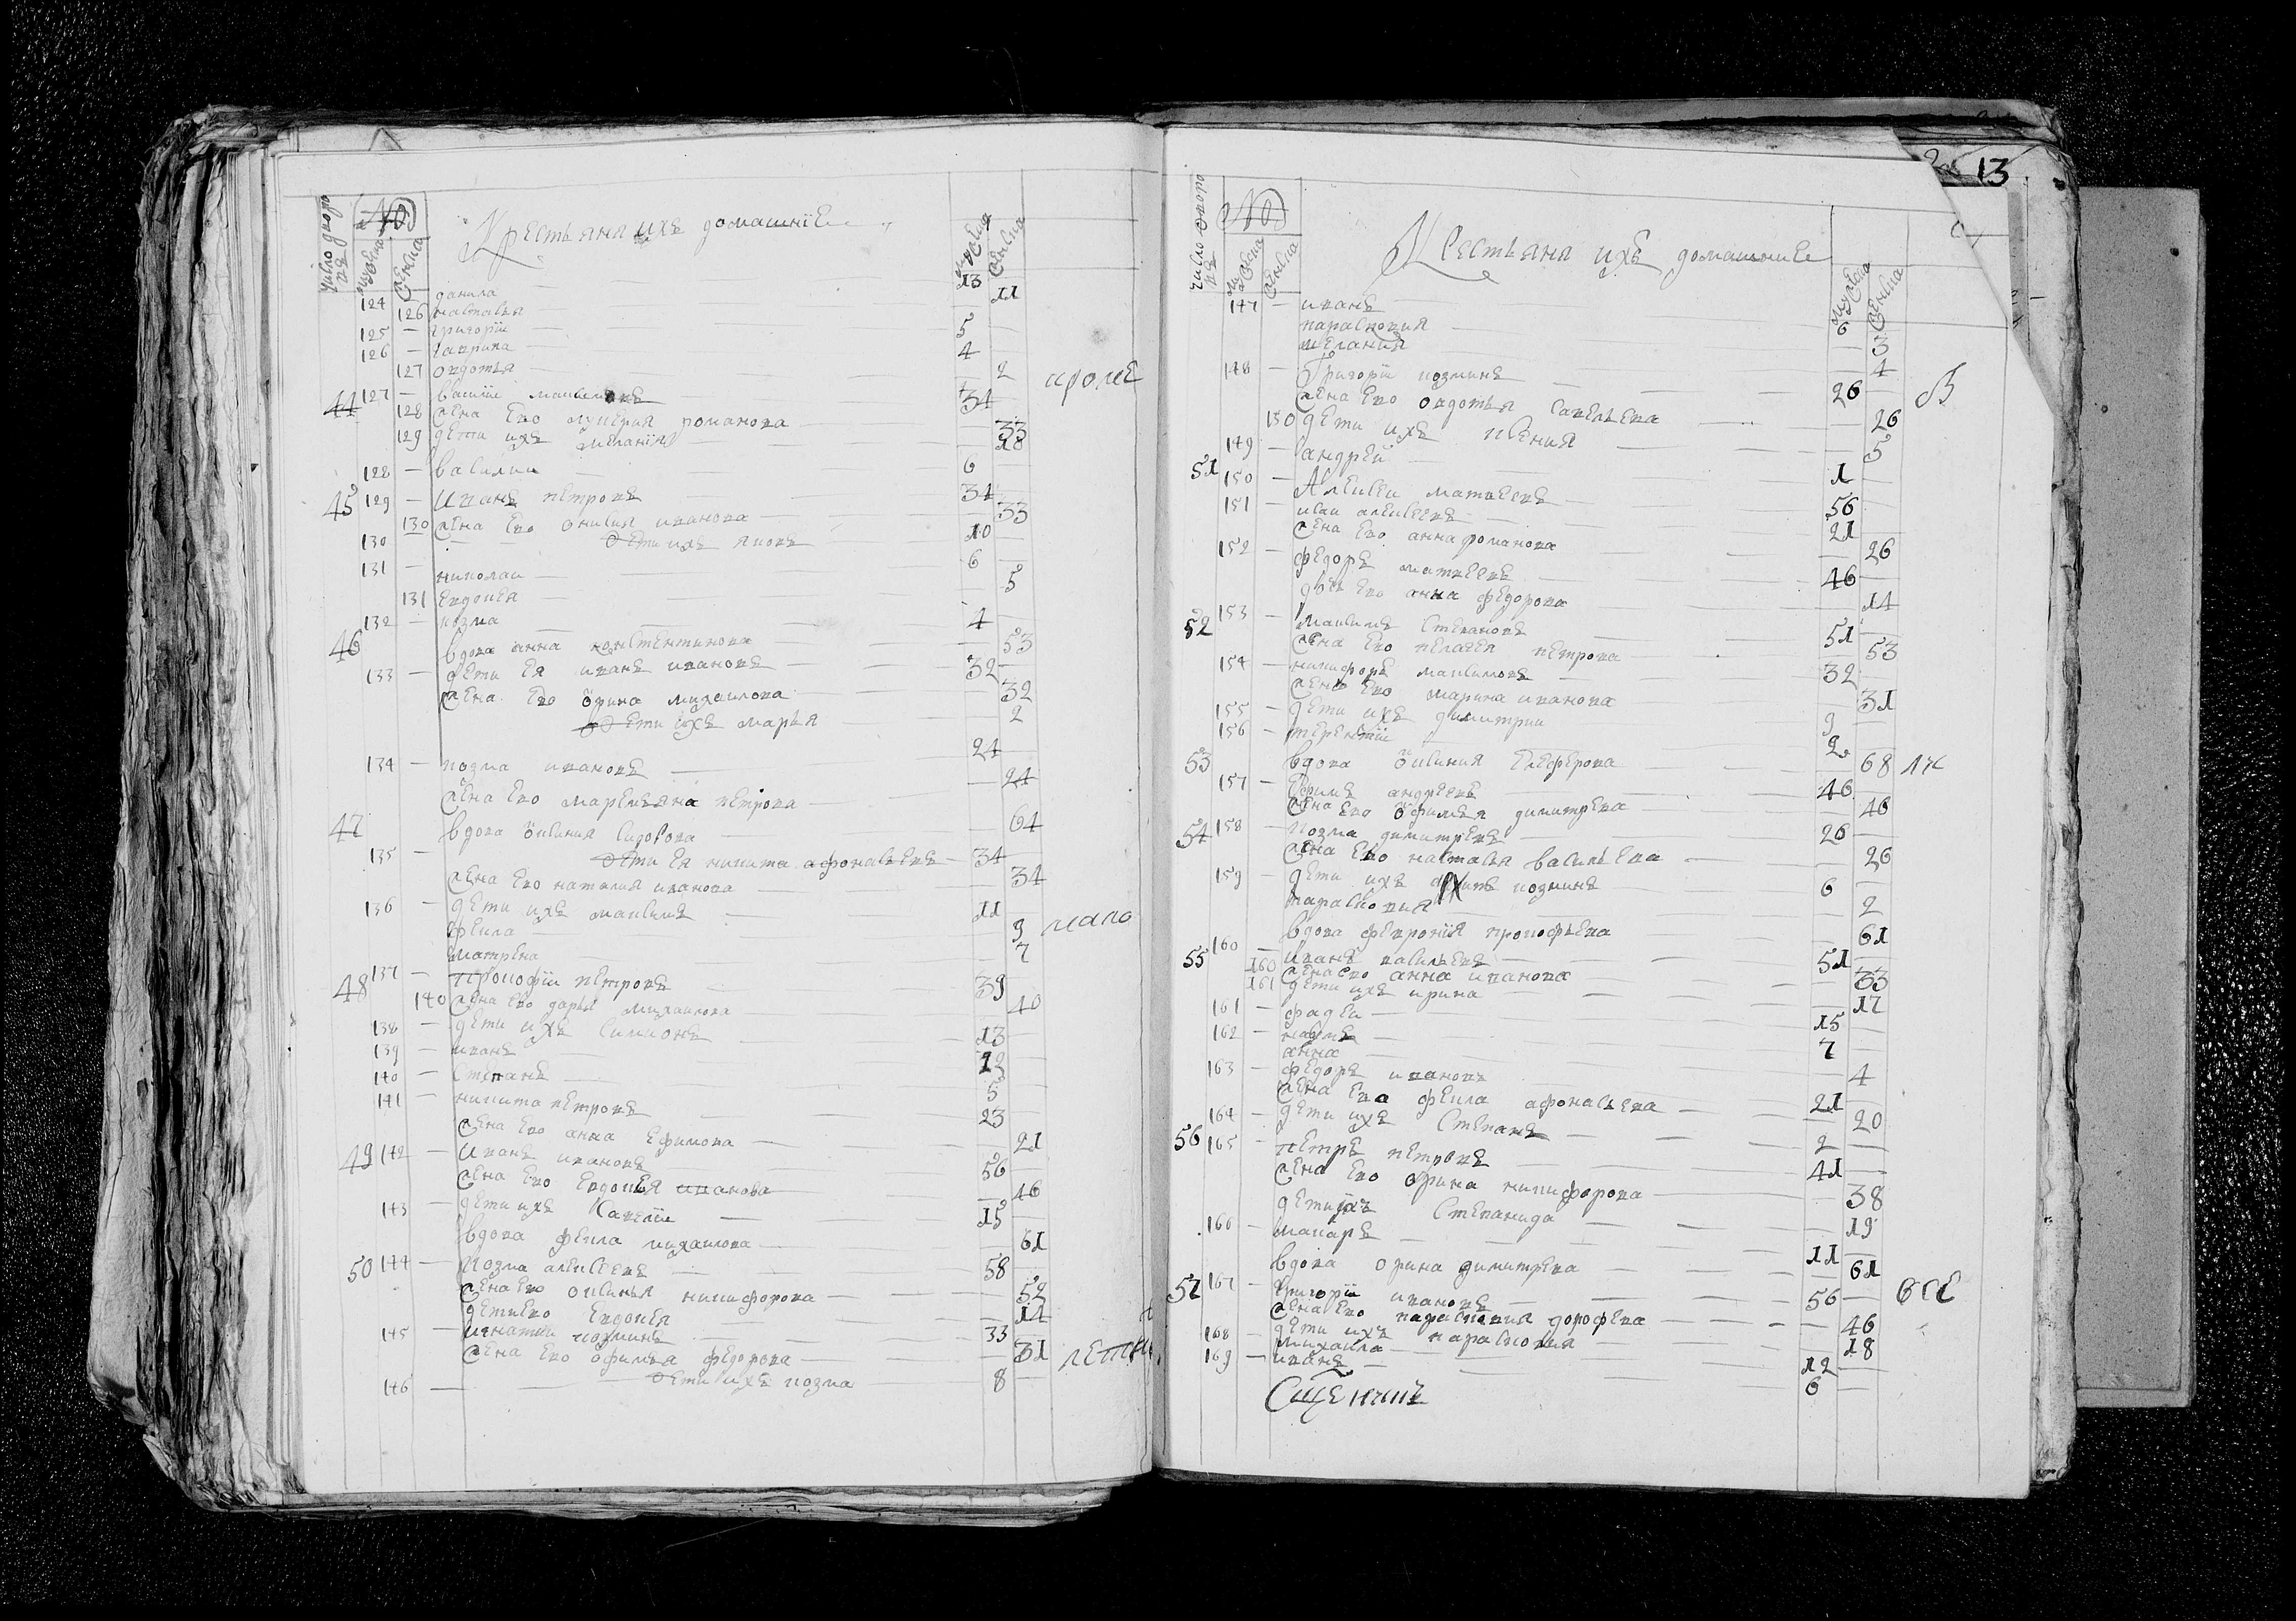 число дворовъ
№
мужеска
женска
Крестьяна ихъ домашнïе
мужеска
женска
124 — данила — 13
126 наталья — 11
125 — григорïи — 5
126 — гаврила — 4
127 овдотья — 2
кроме
44 127 — васıлïи — 34
128 жена ево лукерия романова — 33
129 дети ихъ меланïя — 18
128 — василии — 6
45 129 — Иванъ петровъ — 34
130 жена ево онисия иванова — 33
130 дети ихъ яковъ — 10
131 — николаи — 6
131 евдокея — 5
132 — козма — 4
46 вдова анна констентинова — 53
133 — дети ея иванъ ивановъ — 32
жена ево орина михаилова — 32
дети ихъ марья — 2
134 — козма ивановъ — 24
жена ево маремьяна петрова — 24
47 вдова ѯиния сидорова — 64
135 дети ея никита афонасьевъ — 34
жена ево наталия иванова — 34
136 — дети ихъ максимъ — 11
фекла — 9
мало
матрена — 7
48 137 — прокофïи петровъ — 39
140 жена ево дарья михаилова — 40
138 — дети ихъ симионъ — 13
139 — иванъ — 12
140 — степанъ — 5
141 — никита петровъ — 23
жена ево анна ефимова — 21
49 142 — Иванъ ивановъ — 56
жена ево евдокея иванова — 46
143 — дети ихъ савелïи — 15
вдова фекла михаилова — 61
50 144 — Козма алексеевъ — 58
жена ево оксинья никифорова — 52
дети ево евдокея — 14
145 — игнатïи козминъ — 33
жена ево офимья федорова — 31
летни
146 — дети ихъ козма — 8
13
число двора
№
мужеска
женска
Крестьяна ихъ домашние
мужеска
женска
147 — иванъ — 6
парасковия — 3
мелания — 4
148 — Григорïи козминъ — 26
В
жена ево овдотья савельева — 26
130 дети ихъ ксения — 5
149 — андреи — 1
51 150 — Алексеи матвеевъ — 56
151 — исаи алексеевъ — 21
жена ево анна романова — 26
152 — федоръ матвеевъ — 46
дочь ево анна федорова — 14
52 153 — максимъ степановъ — 51
жена ево пелагея петрова — 53
154 — никифоръ максимовъ — 32
жена ево марина иванова — 31
155 — дети ихъ димитрии — 9
156 — терентïи — 2
53 вдова ѯиния елеферова — 68
157 — ефимъ андреевъ — 46
жена ево офимья димитрева — 46
54 158 — Козма димитревъ — 26
жена ево наталья васильева — 26
159 — дети ихъ архипъ козминъ — 6
парасковия — 2
вдова феврония прокофьева — 61
55 160 — Иванъ васильевъ — 51
160 жена ево анна иванова — 33
161 дети ихъ ирина — 17
161 — фадеи — 15
162 — наумъ — 7
анна — 4
163 — федоръ ивановъ — 21
жена ево фекла афонасьева — 20
164 — дети ихъ степанъ — 2
56 165 — петръ петровъ — 41
жена ево орина никифорова — 38
дети ихъ степанида — 19
166 — макаръ — 11
вдова орина димитрева — 61
57 167 — григорïи ивановъ — 56
все
жена ево парасковия дорофеева — 46
дети ихъ парасковия — 18
168 — михаила — 12
169 — иванъ — 6